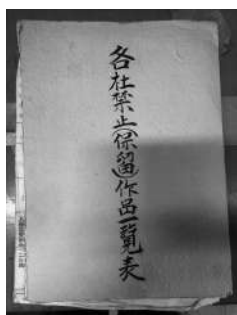 各社禁止(保留)作品一覧表